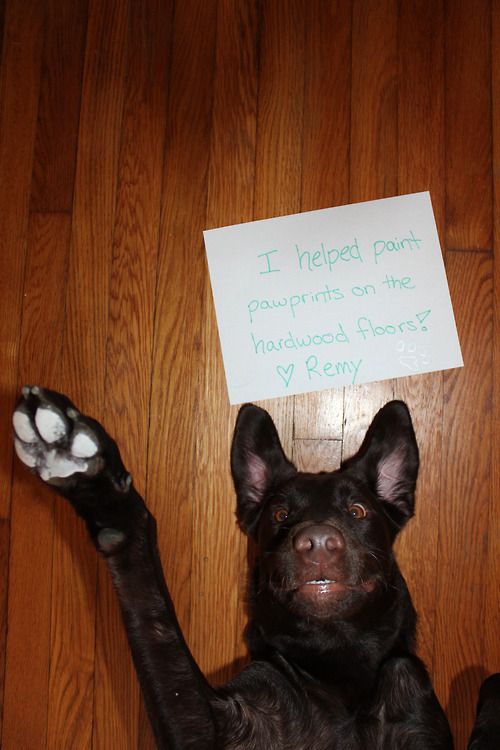 I helped paint
pawprints on the
hardwood floors!
♡ Remy